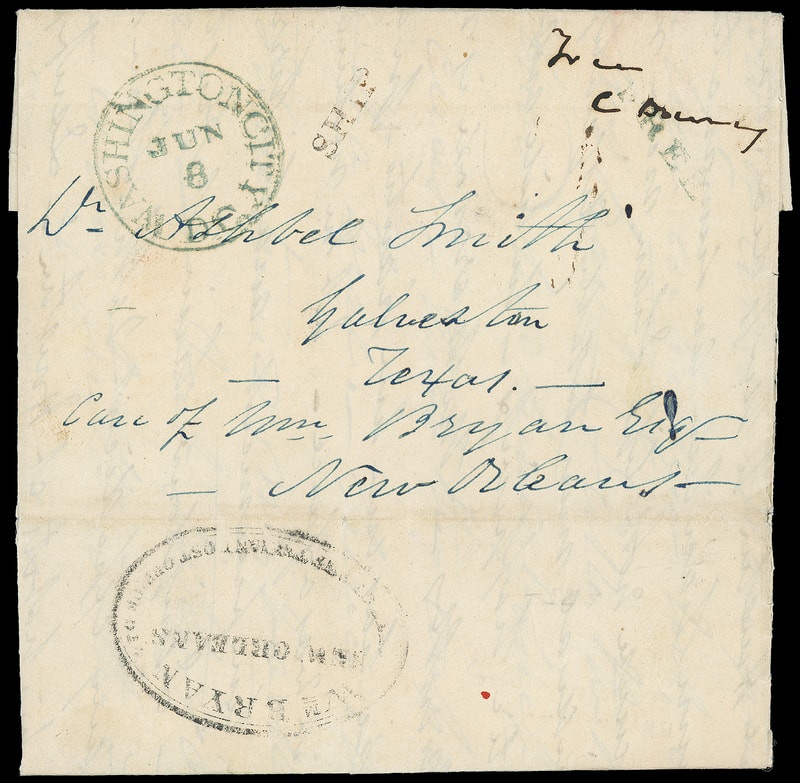 WASHINGTON CITY
JUN
8
D.C.
SHIP
Free
FREE
Dr Ashbel Smith
Galveston
Texas.
Care of Wm. Bryan Esq
New Orleans
Wm BRYAN
NEW ORLEANS